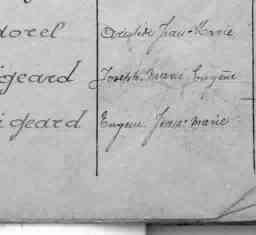 dorel Aristide Jean-Marie
igeard Joseph-Marie Eugène
igeard Eugène Jean-Marie